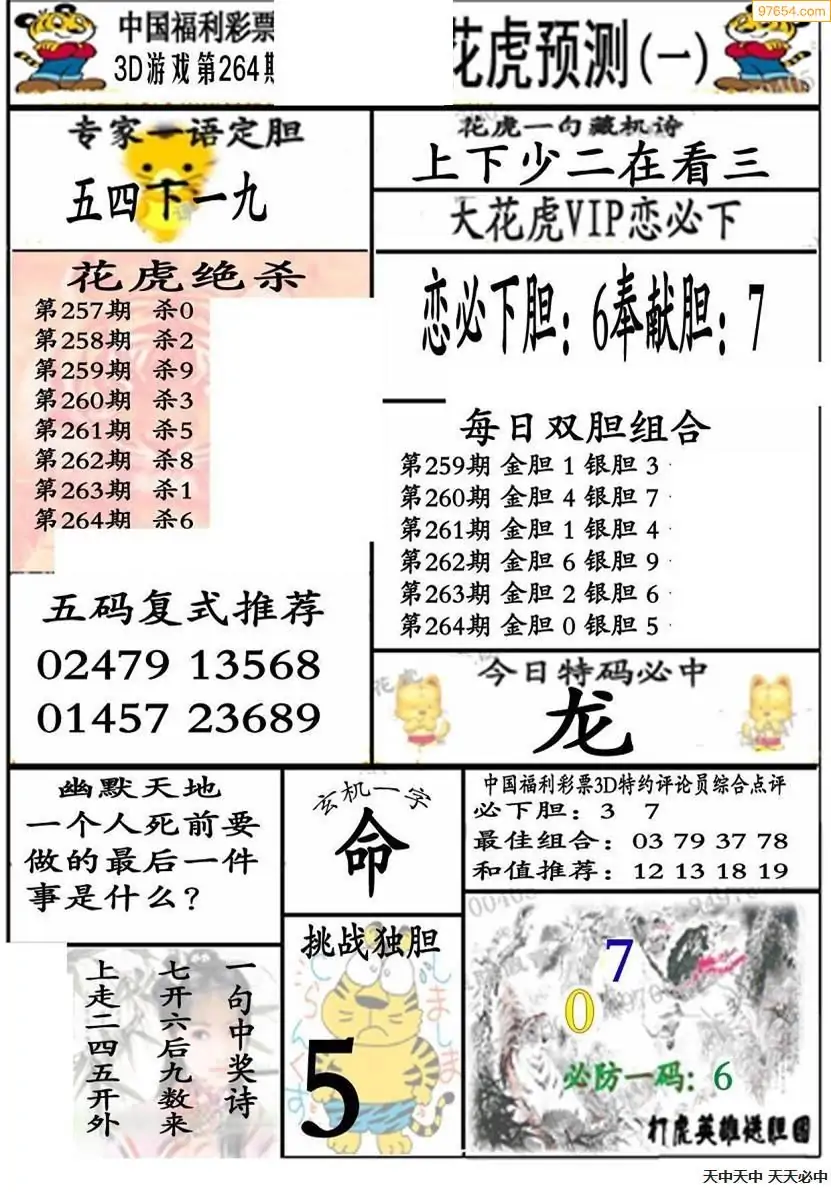 97654.com
中国福利彩票
3D游戏第264期
花虎预测(一)
专家一语定胆
五四下一九
花虎一句藏机诗
上下少二在看三
大花虎VIP恋必下
恋必下胆：6奉献胆：7
花虎绝杀
第257期 杀0
第258期 杀2
第259期 杀9
第260期 杀3
第261期 杀5
第262期 杀8
第263期 杀1
第264期 杀6
每日双胆组合
第259期 金胆 1 银胆 3
第260期 金胆 4 银胆 7
第261期 金胆 1 银胆 4
第262期 金胆 6 银胆 9
第263期 金胆 2 银胆 6
第264期 金胆 0 银胆 5
五码复式推荐
02479 13568
01457 23689
花虎
今日特码必中
龙
幽默天地
一个人死前要
做的最后一件
事是什么？
玄机一字
命
中国福利彩票3D特约评论员综合点评
必下胆：3 7
最佳组合：03 79 37 78
和值推荐：12 13 18 19
一句中奖诗
七开六后九数来
上走二四五开外
挑战独胆
5
7
0
必防一码：6
打虎英雄送胆图
天中天中 天天必中